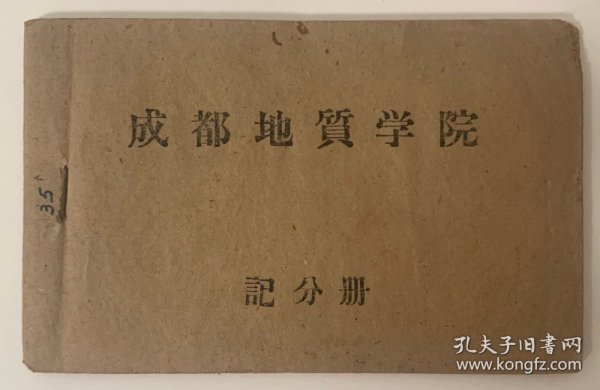 成都地質学院
35
記分册
孔夫子旧書网
www.kongfz.com